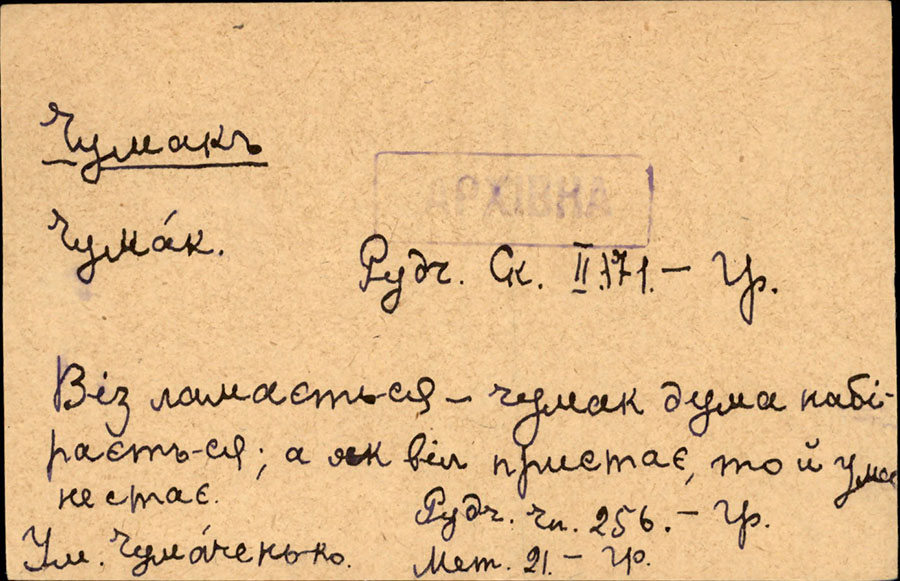 Чумакъ
АРХІВНА
Чума́к.
Рудч. Ск. II.171.– Гр.
Віз ламаєть-ся – чумак дума набі-
раєть-ся; а як віл пристає, то й ума
не стає.
Рудч. Чп. 256.– Гр.
Ум. Чума́ченько.
Мет. 21.– Гр.